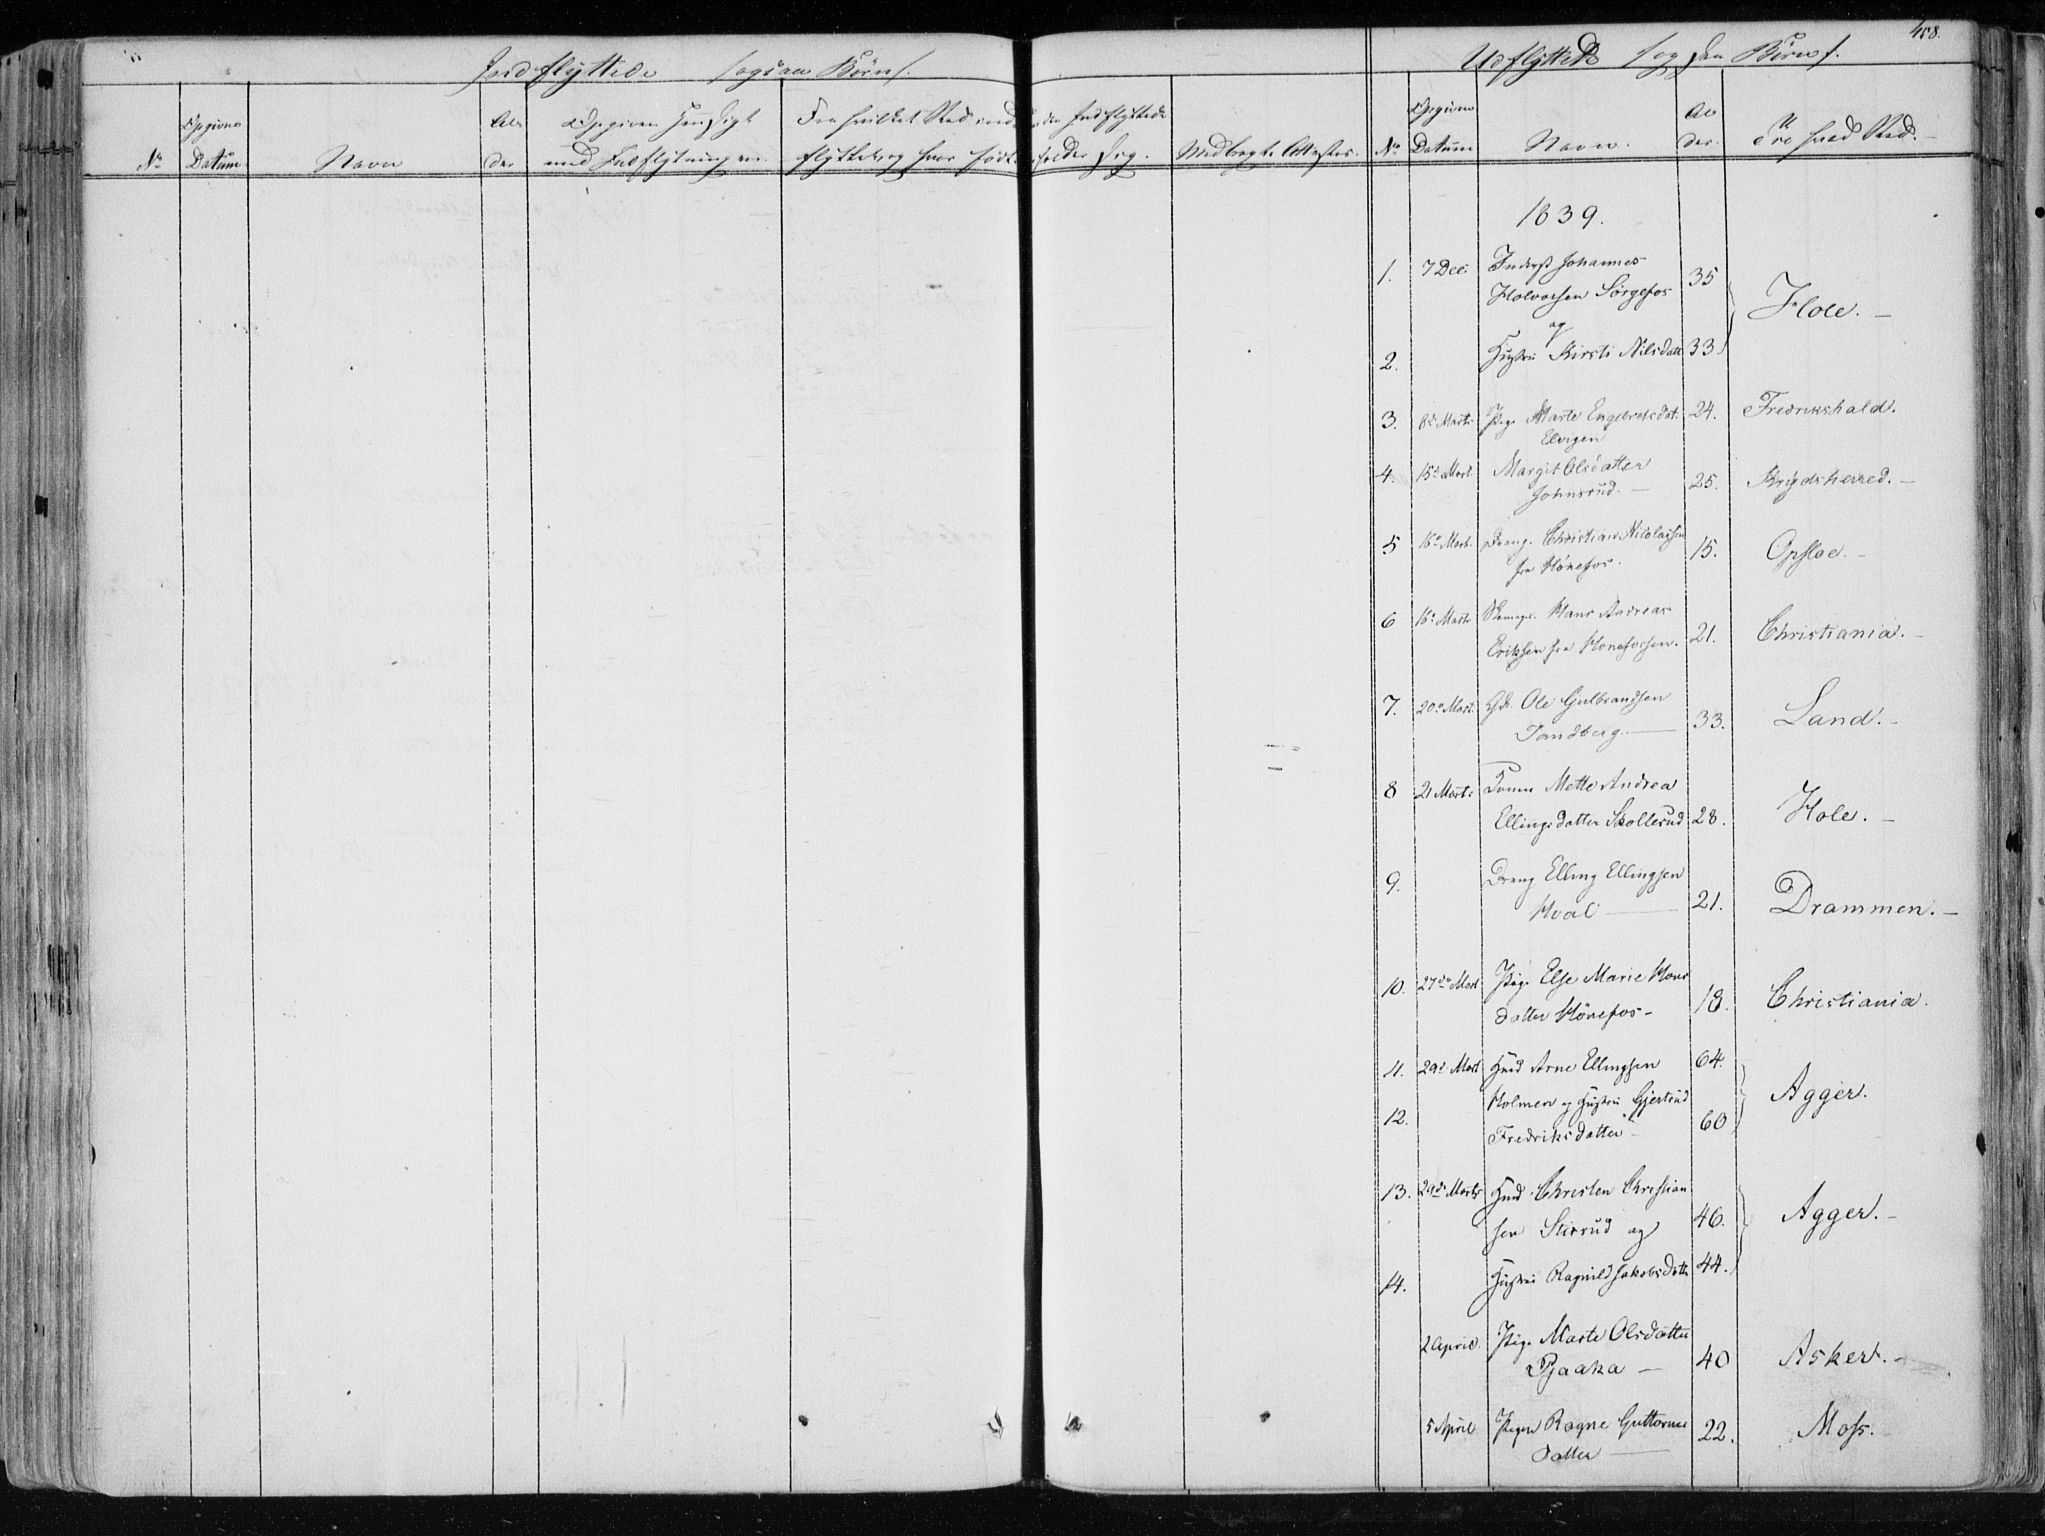 458.
Indflyttede
Udflyttede
No
Opgivne
Datum
Navn
Al
der
Opgiven Hensigt
med Indflytningen.
Medbragte Attester.
No
Opgivne
Datum
Navn.
Al
der.
1839.
1. 7 Dec. Inderst Johannes
Halvorsen Sørgefos 35
og Hole. —
2. Hustru Kirsti Nilsdatt 33.
3. 8de Marts Pige Marte Engebretsdat. 24. Fredrikshald.
Elvigen
4. 15de Mart. Margit Olsdatter
Johnsrud. — 25. Krydsherred. —
5 16de Mart. Dreng. Christian Nicolaisen 15. Opsloe. —
fra Hönefos.
6 16de Marts Hans Andreas
Eriksen fra Hönefossen. 21. Christiania. —
7. 20de Mart. Ole Gulbrandsen
Tandberg. — 33. Land. —
8 21 Marts Mette Andrea
Ellingsdatter Skollerud 28. Hole. —
9. Dreng Elling Ellingsen
Hval — 21. Drammen. —
10. 27de Mart Pige Else Marie Hans
datter Hönefos — 18. Christiania.
11. 29de Mart Huusmd Arne Ellingsen 64.
Holmen og Hustru Gjertrud Agger.
12. Fredriksdatter — 60
13. 29de Marts Christen Christian
sen Stixrud og 46. Agger. —
14. Hustru Ragnild Jakobsdatter 44.
2 April. Pige Marte Olsdatter
Pjaaka — 40 Asker. —
5 April Pigen Ragne Guttorms 22. Moss.
datter —